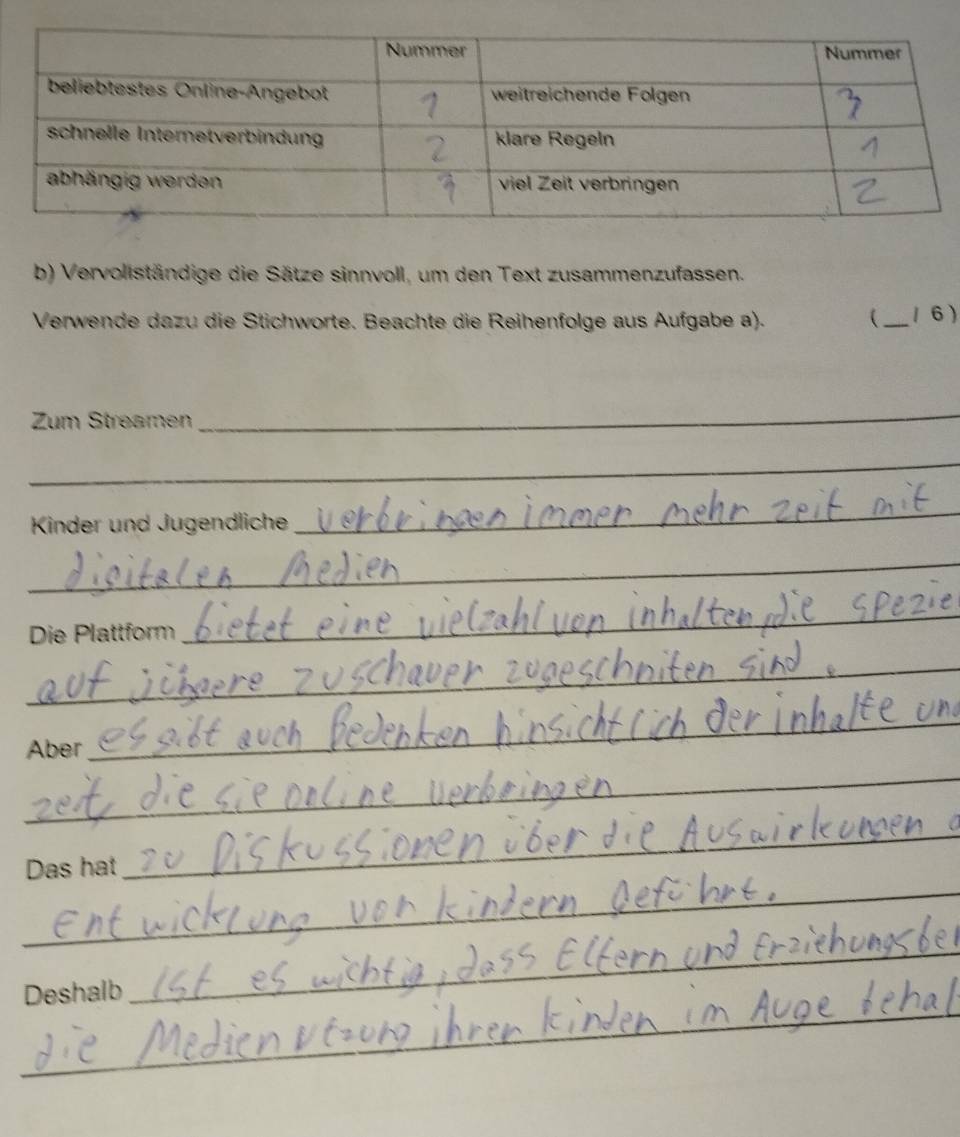 Nummer Nummer
beliebtestes Online-Angebot 1 weitreichende Folgen 3
schnelle Internetverbindung 2 klare Regeln 1
abhängig werden 3 viel Zeit verbringen 2
b) Vervollständige die Sätze sinnvoll, um den Text zusammenzufassen.
Verwende dazu die Stichworte. Beachte die Reihenfolge aus Aufgabe a). ( __ / 6 )
Zum Streamen
Kinder und Jugendliche verbringen immer mehr zeit mit
digitalen Medien
Die Plattform bietet eine vielzahl von inhalten, die spezie
auf jüngere zuschauer zugeschniten sind.
Aber es gibt auch Bedenken hinsichtlich der inhalte und
zeit, die sie online verbringen
Das hat zu Diskussionen über die Auswirkungen a
Entwicklung von kindern geführt.
Deshalb ist es wichtig, dass Eltern und Erziehungsber
die Mediennutzung ihren kinden im Auge behal